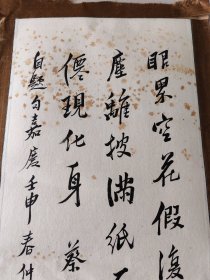 眼界空花假復
塵離披滿紙
僊現化身 蔡
自題句嘉慶壬申春仲